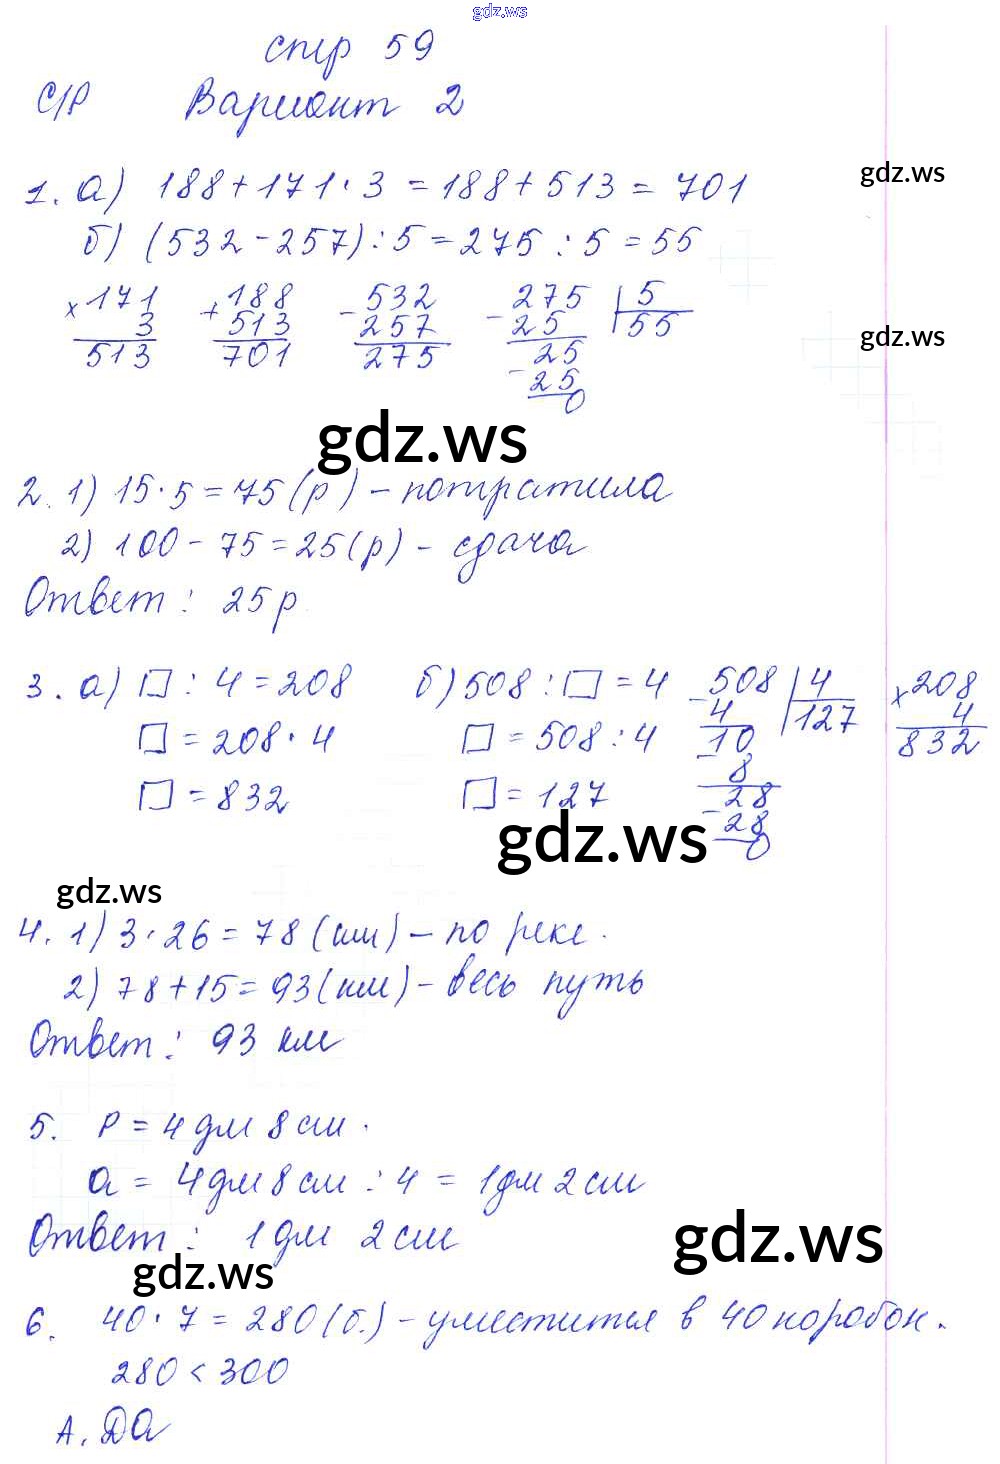 gdz.ws
стр 59
С/Р Вариант 2
gdz.ws
1. а) 188 + 171 · 3 = 188 + 513 = 701
б) (532 - 257) : 5 = 275 : 5 = 55
× 171 + 188 - 532 - 275 | 5
3 513 257 25 55
513 701 275 25
- 25
0
gdz.ws
gdz.ws
2. 1) 15 · 5 = 75 (р) - потратила
2) 100 - 75 = 25 (р) - сдача
Ответ : 25 р.
3. а) □ : 4 = 208 б) 508 : □ = 4 - 508 | 4 × 208
□ = 208 · 4 □ = 508 : 4 4 127 4
- 10 832
□ = 832 □ = 127 8
- 28
28
0
gdz.ws
gdz.ws
4. 1) 3 · 26 = 78 (км) - по реке.
2) 78 + 15 = 93 (км) - весь путь
Ответ : 93 км
5. P = 4 дм 8 см.
а = 4 дм 8 см : 4 = 1 дм 2 см
Ответ : 1 дм 2 см
gdz.ws
gdz.ws
6. 40 · 7 = 280 (б.) - уместится в 40 коробок.
280 < 300
А. ДА